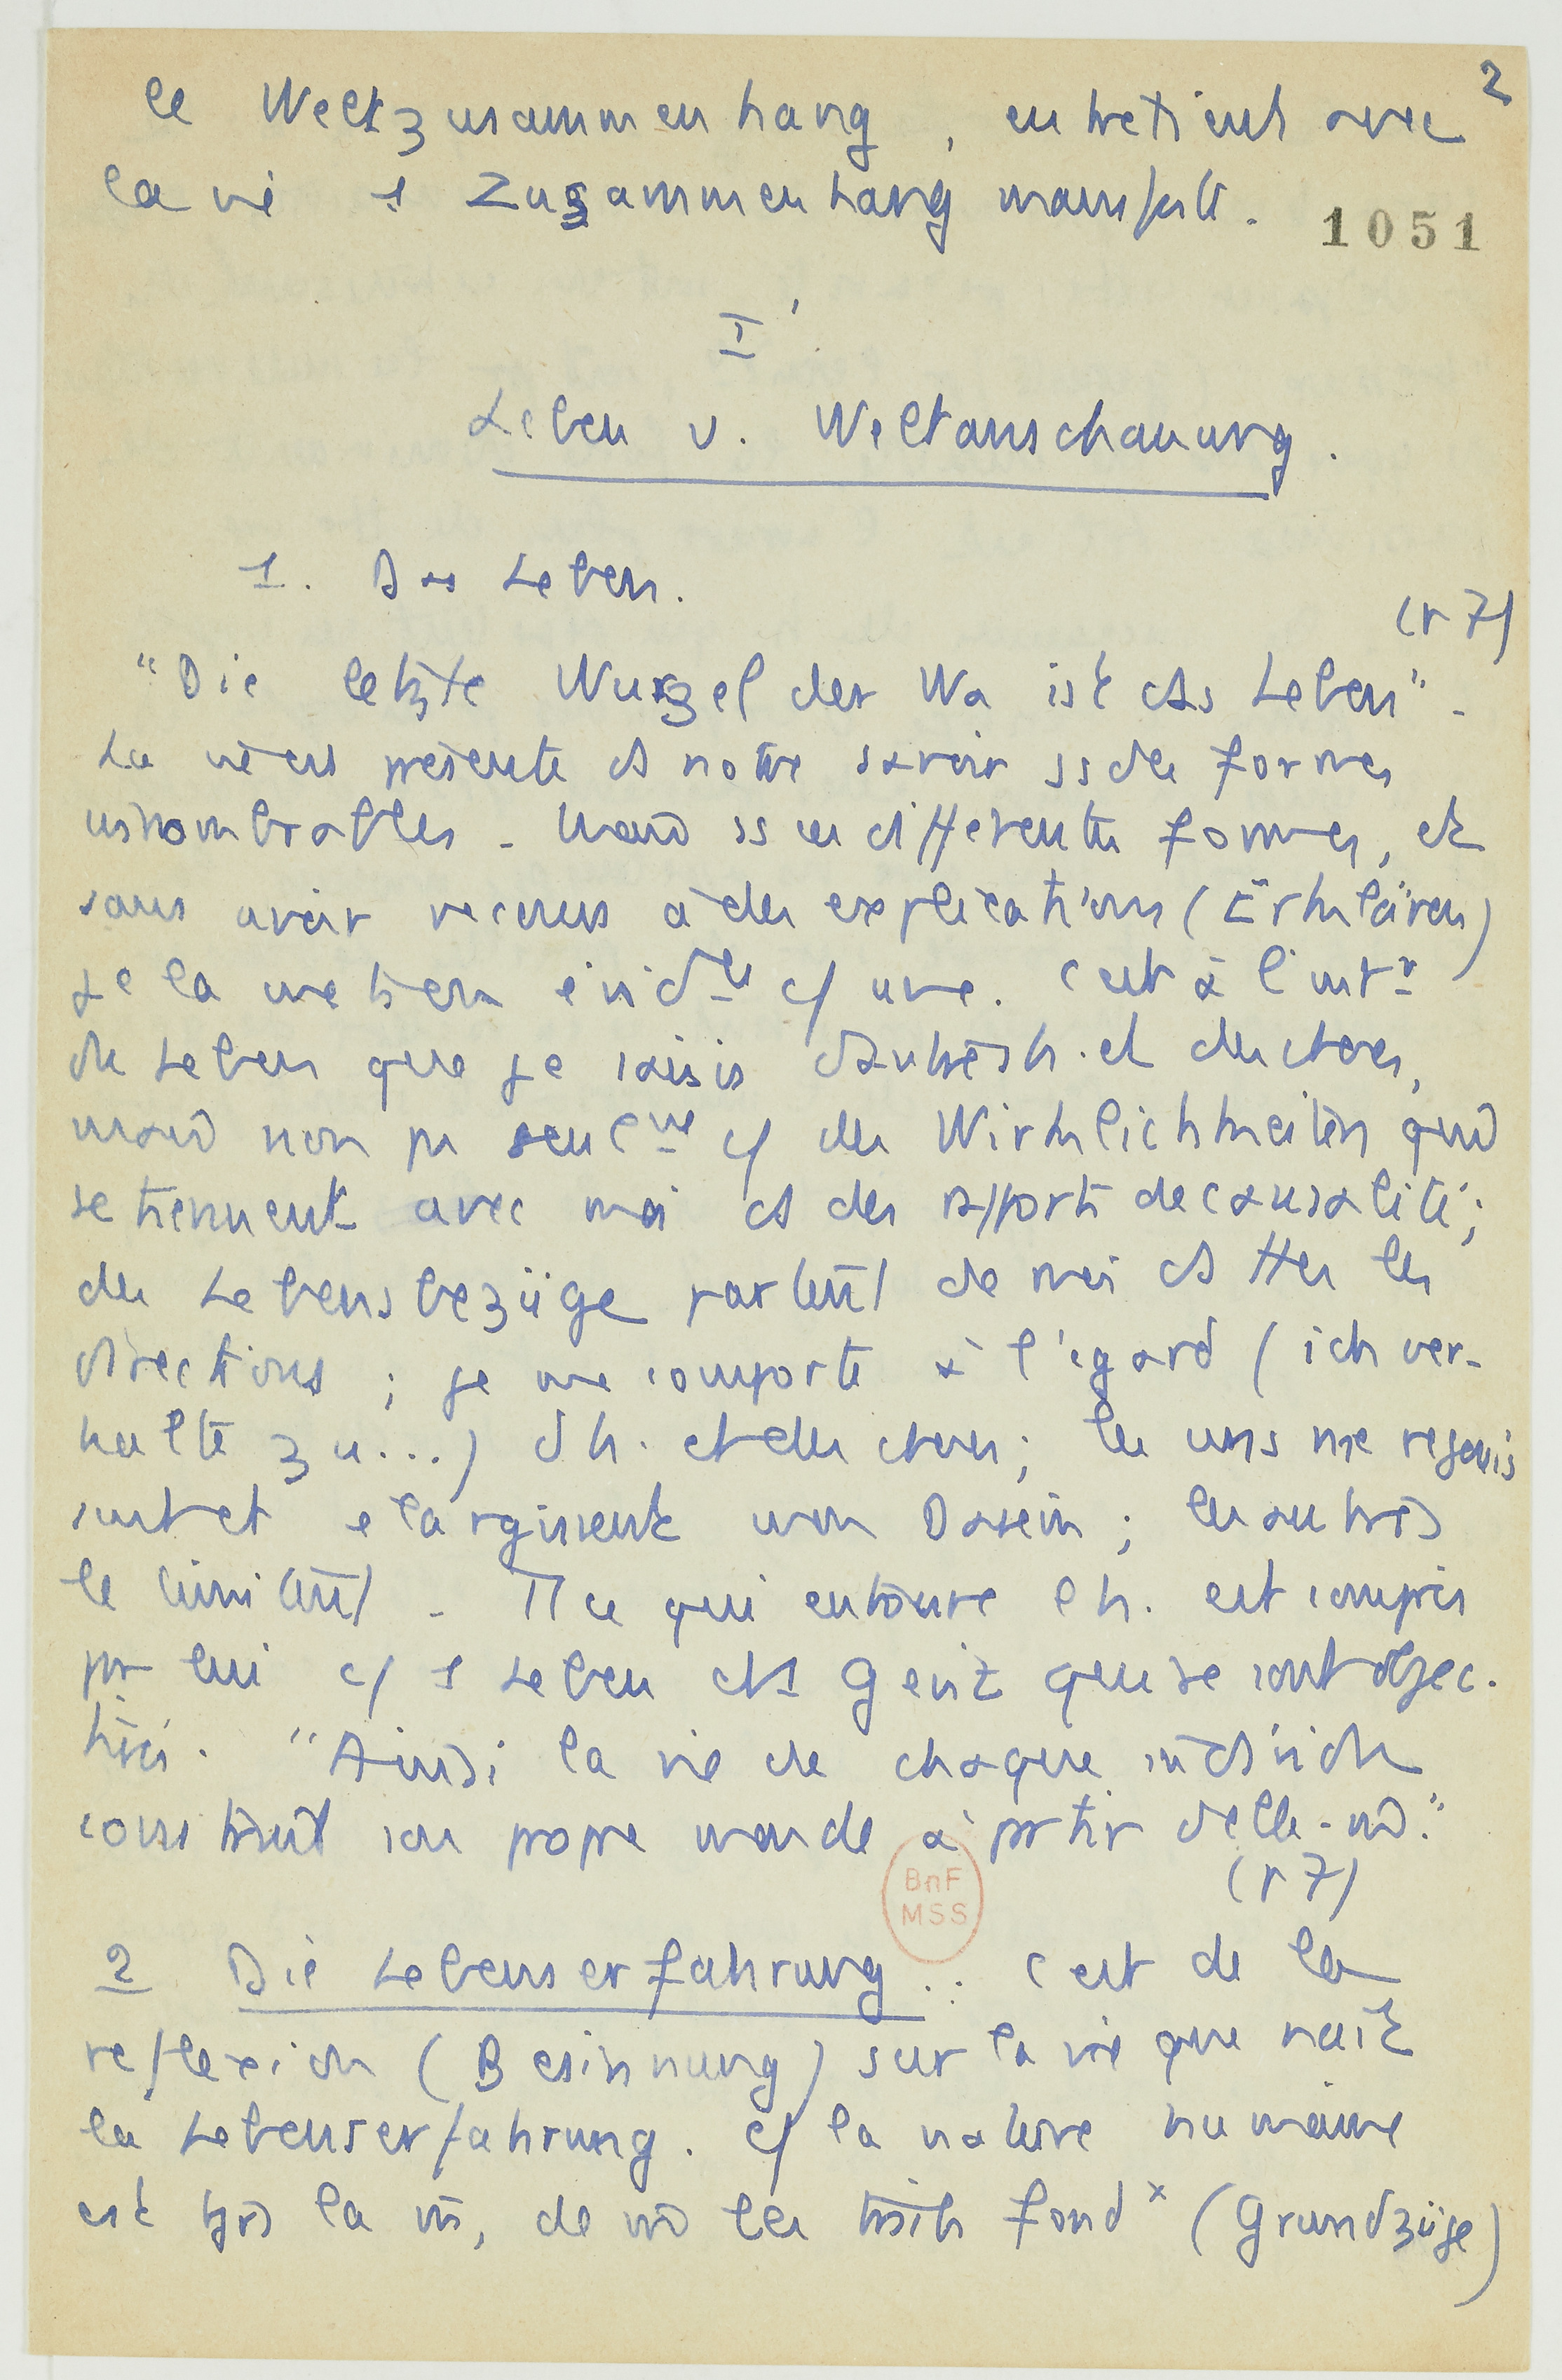 2
le Weltzusammenhang, entretient avec
la vie 1 Zusammenhang manifeste.
1051
I
Leben u. Weltanschauung.
1. Das Leben.
(p 7)
"Die letzte Wurzel der Wa ist das Leben".
La vie est présente ds notre savoir ss des formes
innombrables. Mais ss ces différentes formes, et
sans avoir recours à des explications (Erklären)
je la
c/ une. C'est à l'intr
du Leben que je saisis d'autres h. et des choses,
mais non pas seulmt c/ des Wirklichkeiten qui
se tiennent avec moi ds des rapports de causalité;
des Lebensbezüge partent de moi ds ttes les
directions; je me comporte à l'égard (ich ver-
halte zu...) d'h. et des choses; les uns me réjouis
sent et élargissent mon Dasein; les autres
le limitent. Tt ce qui entoure l'h. est compris
par lui c/ 1 Leben ds 1 Geist qui se sont objec-
tivés. "Ainsi la vie de chaque individu
construit son propre monde à partir d'elle-m̂."
(p 7)
BnF
MSS
2 Die Lebenserfahrung.: C'est de la
réflexion (Besinnung) sur la vie que naît
la Lebenserfahrung. C/ la nature humaine
est tjrs la m̂, de m̂ les traits fondx (Grundzüge)